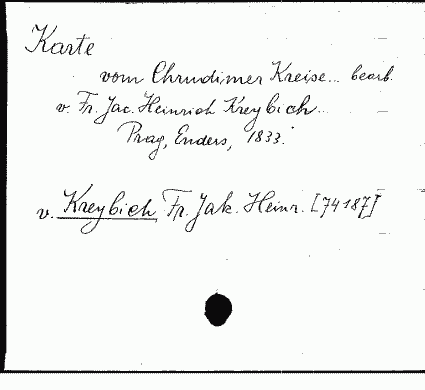 Karte
vom Chrudimer Kreise... bearb.
v. Fr. Jac. Heinrich Kreybich...
Prag, Enders, 1833.
v. Kreybich Fr. Jak. Heinr. [74187]